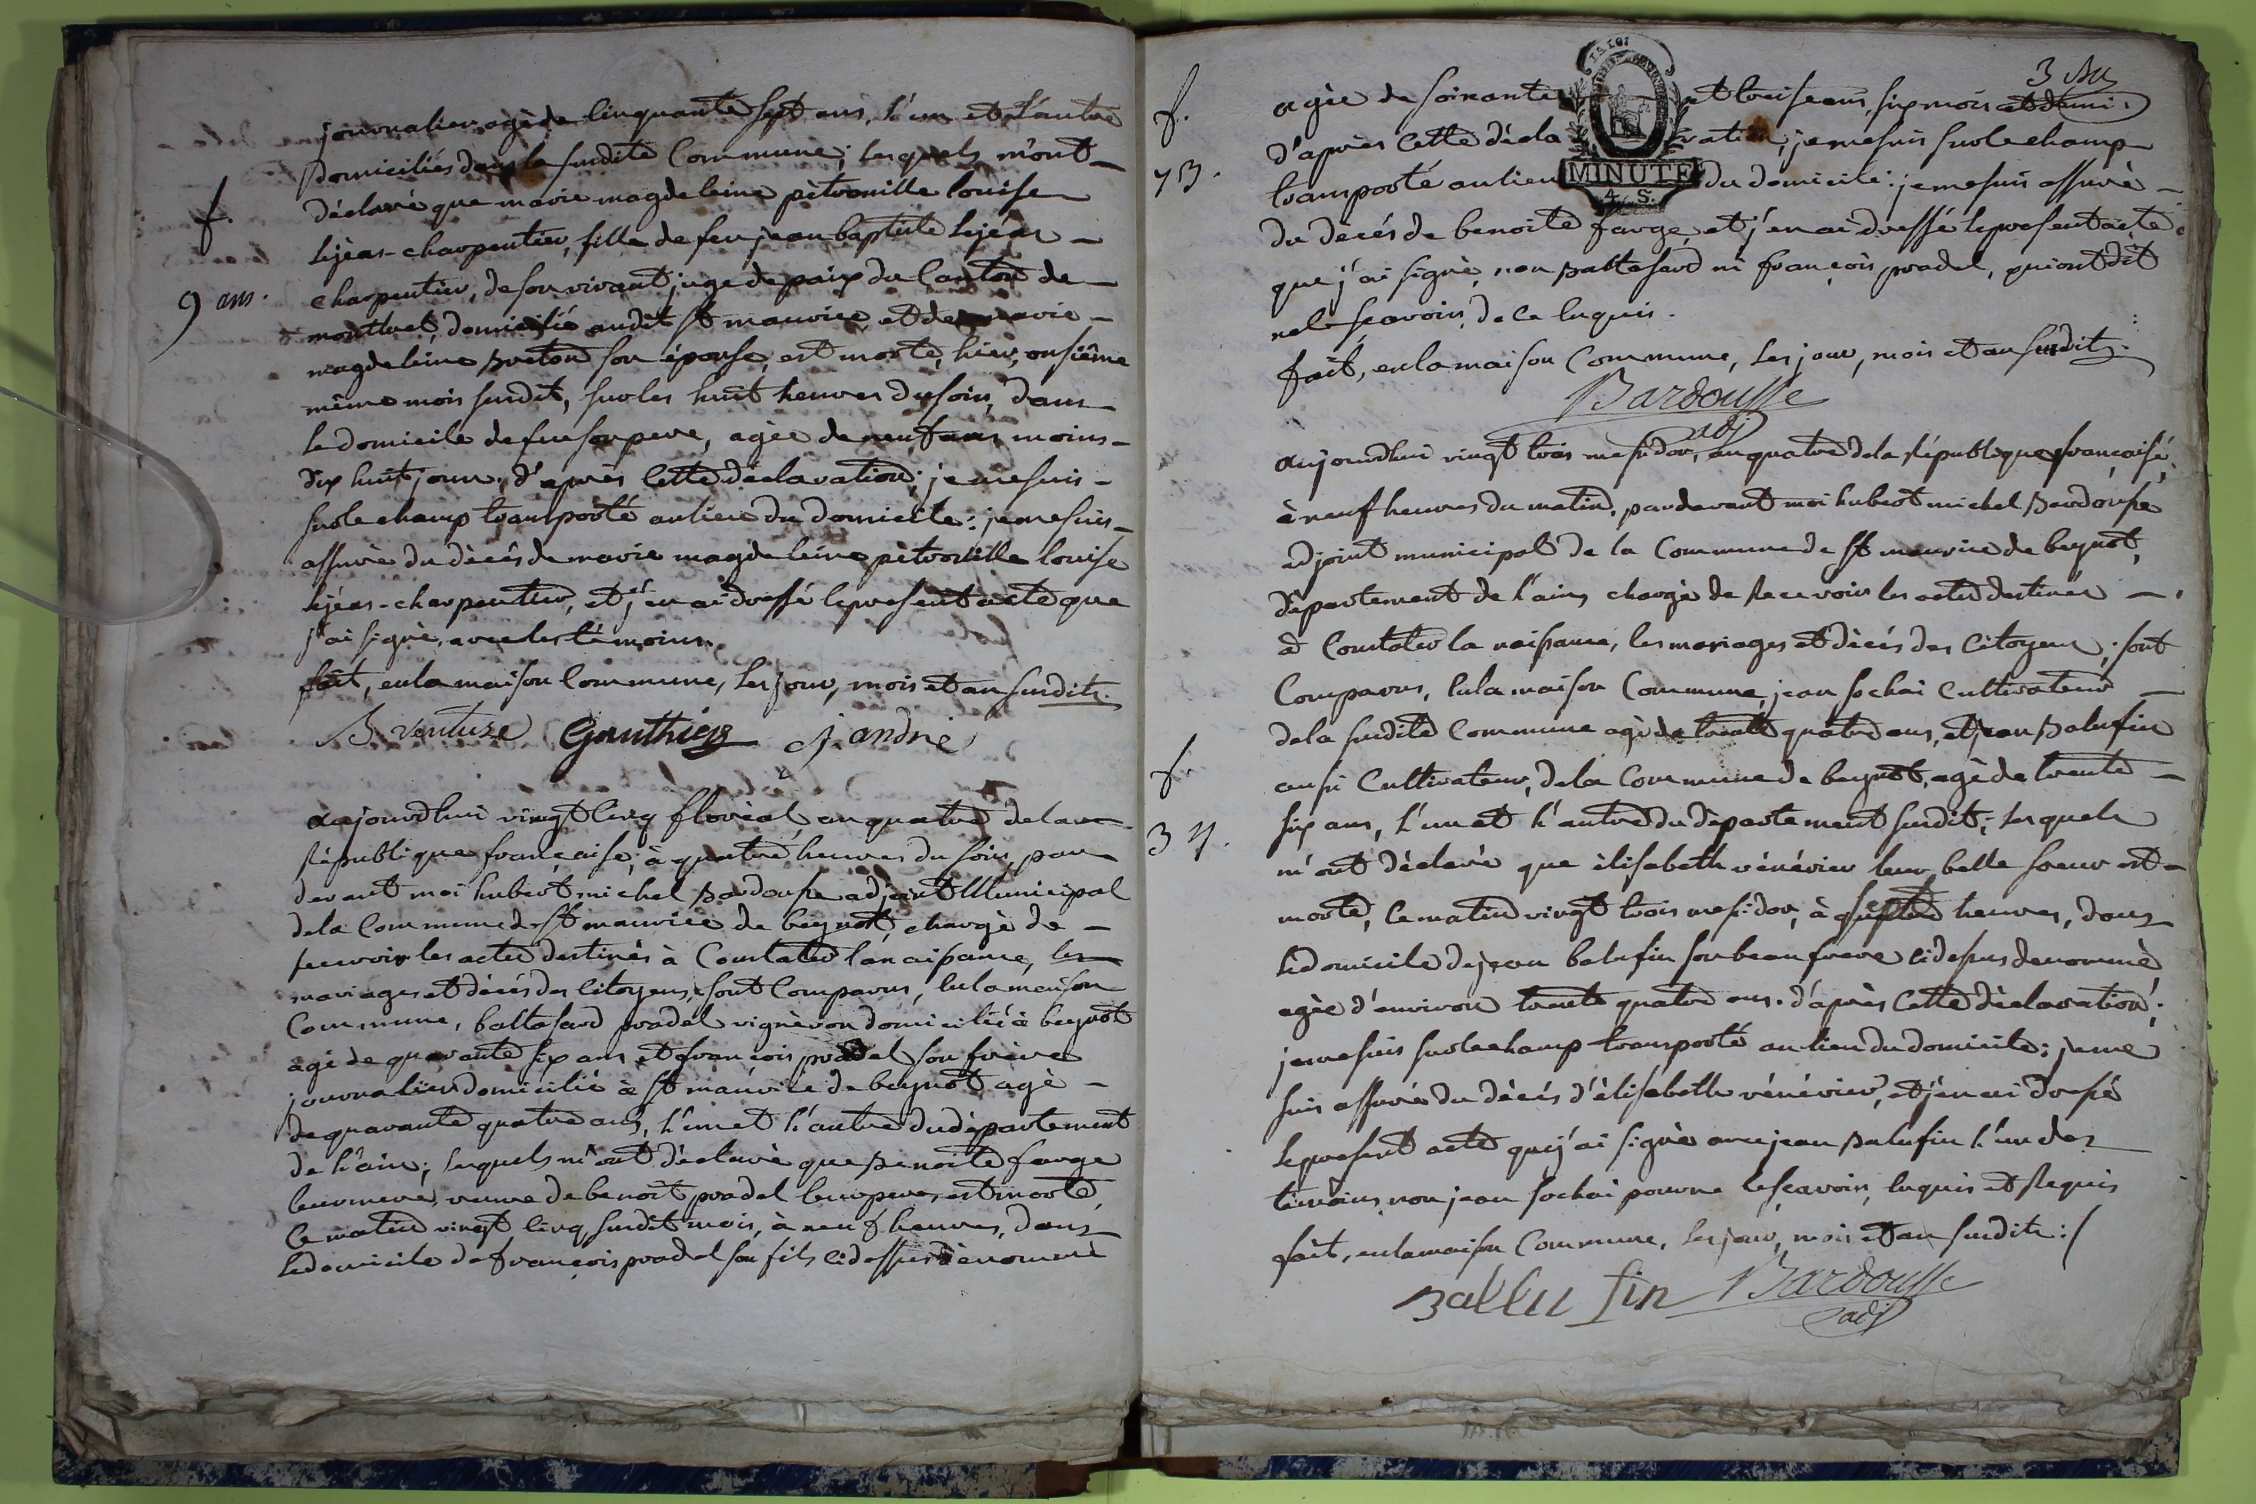 journalier, agé de cinquante sept ans, l'un et l'autre
domiciliés dans la susdite Commune; lesquels m'ont
f.
déclaré que marie magdeleine pétronille louise
lejéas-charpentier, fille de feu jean baptiste lejéas
9 ans.
charpentier, de son vivant juge de paix du Canton de
montluel, domicilié audit St maurice, et de marie
magdeleine breton son épouse, est morte, hier, onsiême
même mois susdit, sur les huit heures du soir, dans
le domicile de feu son pere, agée de neuf ans, moins
dix huit jours, d'après cette déclaration; je me suis
sur le champ transporté au lieu du domicile: je me suis
assuré du décés de marie magdeleine pétronille louise
lejéas-charpentier, et j'en ai dressé le present acte que
j'ai signé, avec les témoins.
fait, en la maison Commune, les jour, mois et an susdits.
B. venture Gauthier j. andrié
aujourdhui vingt cinq floréal, an quatre de la
république française; à quatre heures du soir, par
devant moi hubert michel Bardousse adjoint Municipal
de la Commune de St maurice de beynost, chargé de
recevoir les actes destinés à Constater la naissance, les
mariages et décés des Citoyens, sont Comparus, en la maison
Commune, baltasard pradel vigneron domicilié à beynost
agé de quarante six ans et françois pradel son frère
journalier domicilié à St maurice de beynost agé
de quarante quatre ans, l'un et l'autre du département
de l'ain; lesquels m'ont déclaré que Benoite farge
leur mere, veuve de benoit pradel leur pere, est morte,
Ce matin vingt cinq susdit mois, à neuf heures, dans
le domicile de françois pradel son fils cidessus dénommé
3 su
f.
agée de soixante et treise ans, six mois et demi.
73.
d'après cette déclaration, je me suis sur le champ
MINUTE
4. S.
transporté au lieu du domicile: je me suis assuré
du décés de benoite farge, et j'en ai dressé le present acte
que j'ai signé, non baltasard ni françois pradel, qui ont dit
ne le sçavoir, de ce enquis.
fait, en la maison Commune, les jour, mois et an susdits.
Bardousse
adj
aujourdhui vingt trois messidor, an quatre de la république française,
à neuf heures du matin, pardevant moi hubert michel Bardousse
adjoint municipal de la Commune de St maurice de beynost,
département de l'ain, chargé de recevoir les actes destinés
à Constater la naissance, les mariages et décés des Citoyens; sont
Comparus, en la maison Commune, jean sochai Cultivateur
de la susdite Commune agé de trente quatre ans, et jean Balufin
f.
aussi Cultivateur, de la Commune de beynost, agé de trente
34.
six ans, l'un et l'autre du département susdit; lesquels
m'ont déclaré que élisabeth vénérier leur belle soeur est
morte, Ce matin vingt trois messidor, à sept heures, dans
le domicile de jean balufin son beau frere cidessus denommé
agée d'environ trente quatre ans. d'après cette déclaration;
je me suis sur le champ transporté au lieu du domicile; je me
suis assuré du décés d'élisabeth vénérier, et j'en ai dressé
le present acte que j'ai signé avec jean Balufin l'un des
témoins, non jean sochai pour ne le sçavoir, enquis et requis
fait, en la maison Commune, les jour, mois et an susdits:/
Ballu fin Bardousse
adj